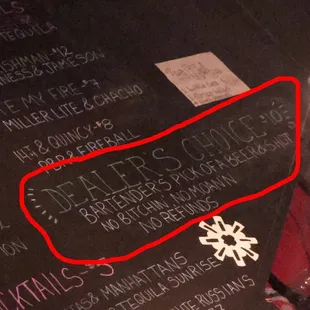 TEQUILA
ISHMAN-$12
NESS & JAMESON
E MY FIRE-$7
MILLER LITE & CHACHO
14T & QUINCY-$8
PBR & FIREBALL
DEALER'S CHOICE $10
BARTENDER'S PICK OF A BEER & SHOT
NO BITCHIN, NO MOANIN
NO REFUNDS
CKTAILS-$5
AS & MANHATTANS
TEQUILA SUNRISE
WHITE RUSSIANS